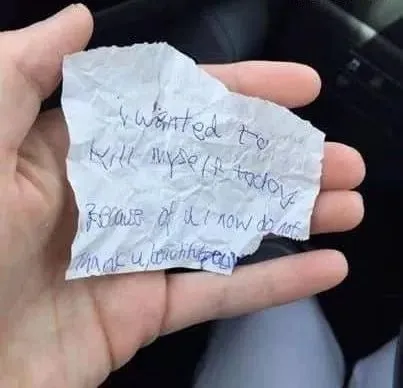 i wanted to
kill myself today
Because of u i now do not
thank u, beautiful